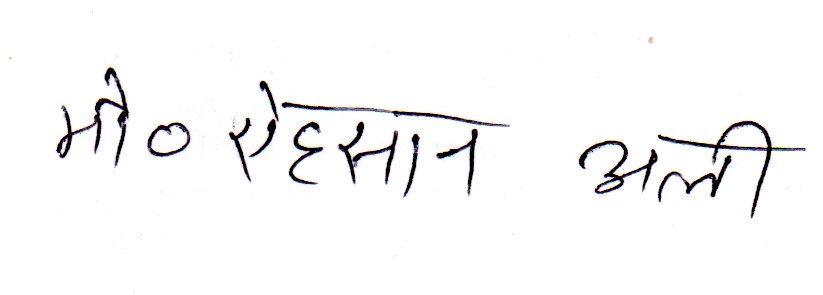 मो० ऐहसान अली